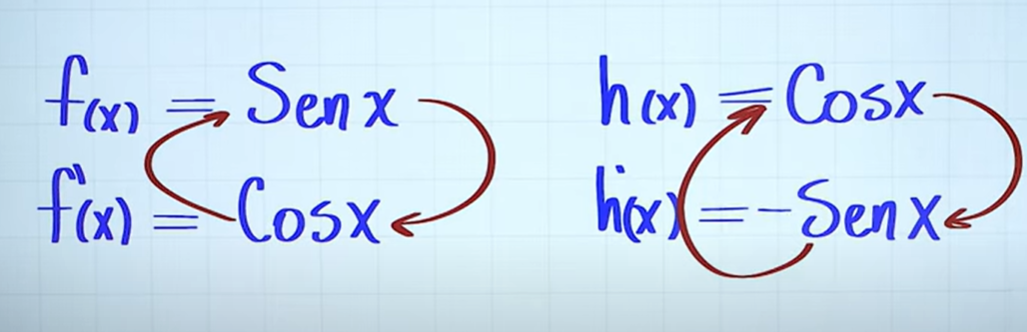 f(x) = Sen x
f'(x) = Cosx
h(x) = Cosx
h'(x) = -Sen x